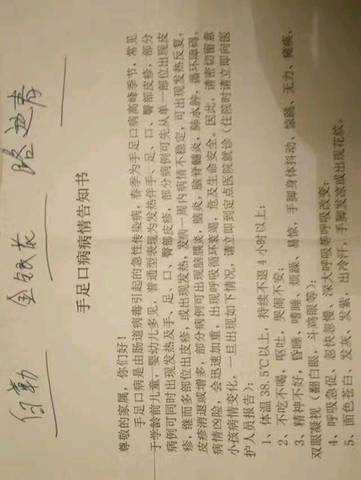 手足口病病情告知书
尊敬的家属，你们好！
手足口病是由肠道病毒引起的急性传染病，春季为手足口病高峰季节，常见
于学龄前儿童，婴幼儿多见，普通型表现为发热伴手、足、口、臀部皮疹，部分
病例可同时出现发热及手、足、口、臀部皮疹，部分病例可先从单一部位出现皮
疹，继而多部位出皮疹，或出现发热，发病一周内病情不稳定，可出现发热反复，
皮疹消退或增多，部分病例可出现脑膜炎，脑炎，脑脊髓炎，肺水肿，循环障碍，
病情凶险，会迅速加重，出现呼吸循环衰竭，危及生命安全。因此，请密切留意
小孩病情变化，一旦出现如下情况，请立即到定点医院就诊（住院时请立即向医
护人员报告）：
1、体温38.5℃以上，持续不退4小时以上；
2、不吃不喝，呕吐，哭闹不安；
3、精神不好，昏睡，嗜睡、烦躁、易惊，手脚身体抖动、惊跳、无力、瘫痪，
双眼凝视（翻白眼，斗鸡眼等）；
4、呼吸急促、忽快忽慢、深大呼吸等呼吸改变；
5、面色苍白、发灰、发紫，出冷汗，手脚发凉或出现花纹。